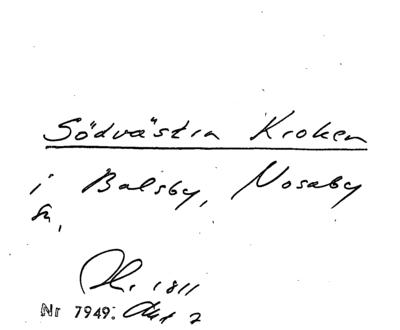 Södvästra Kroken
i Balsby, Nosaby
sn,
1811
Nr 7949: